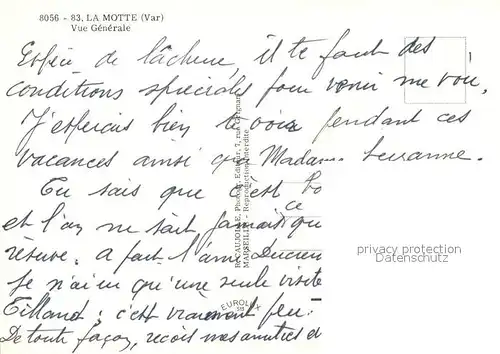 8056 - 83. LA MOTTE (Var)
Vue Générale
Espèce de lâcheur, il te faut des
conditions spéciales pour venir me voir,
J'espérais bien te voir pendant ces
vacances ainsi que Madame Suzanne.
Tu sais que c'est bo
ce
et l'on ne sait jamais qu
réserve. a part l'ami Lucien
je n'ai eu qu'une seule visite
c'est vraiment peu.
De toute façon, reçois mes amitiés et
R. CAUJOLLE, Photo-Editeur, 7, rue
MARSEILLE - Reproduction interdite
EUROLUX
privacy protection
Datenschutz